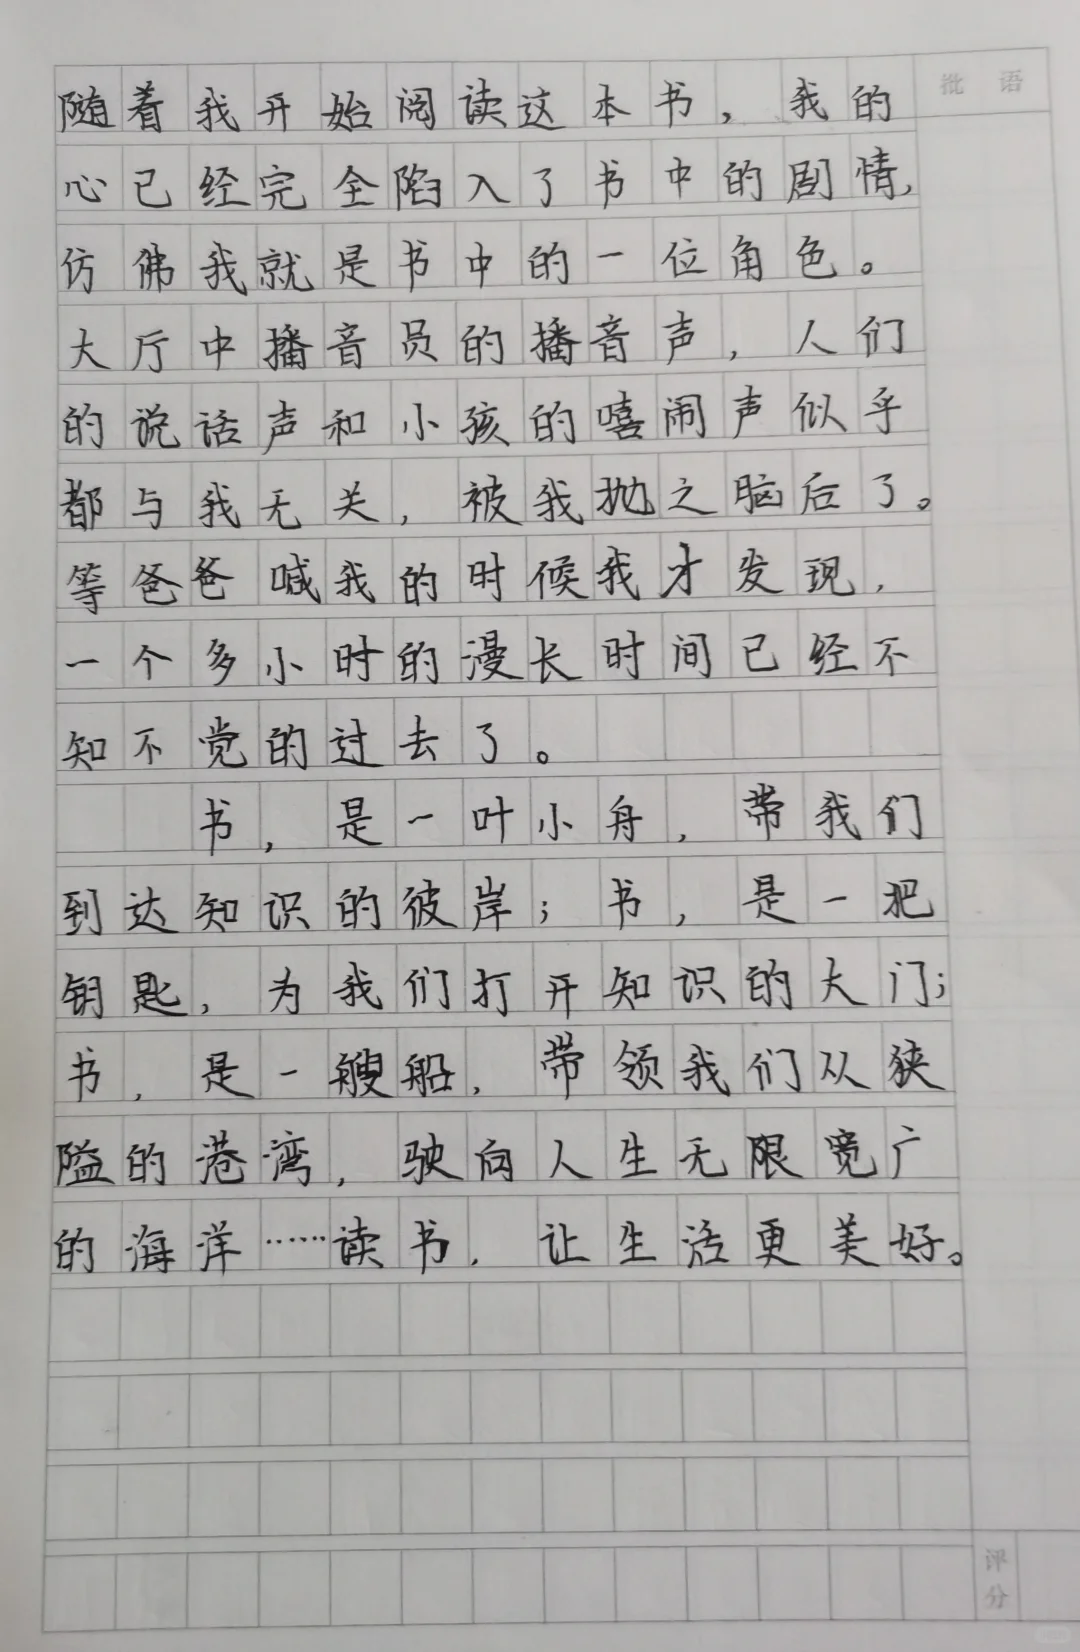 批 语
随着我开始阅读这本书，我的
心已经完全陷入了书中的剧情，
仿佛我就是书中的一位角色。
大厅中播音员的播音声，人们
的说话声和小孩的嘻闹声似乎
都与我无关，被我抛之脑后了。
等爸爸喊我的时候我才发现，
一个多小时的漫长时间已经不
知不觉的过去了。
书，是一叶小舟，带我们
到达知识的彼岸；书，是一把
钥匙，为我们打开知识的大门；
书，是一艘船，带领我们从狭
隘的港湾，驶向人生无限宽广
的海洋……读书，让生活更美好。
评
分